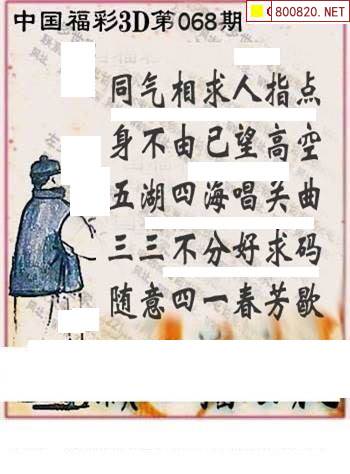 800820.NET
中国福彩3D第068期
同气相求人指点
身不由已望高空
五湖四海唱关曲
三三不分好求码
随意四一春芳歇